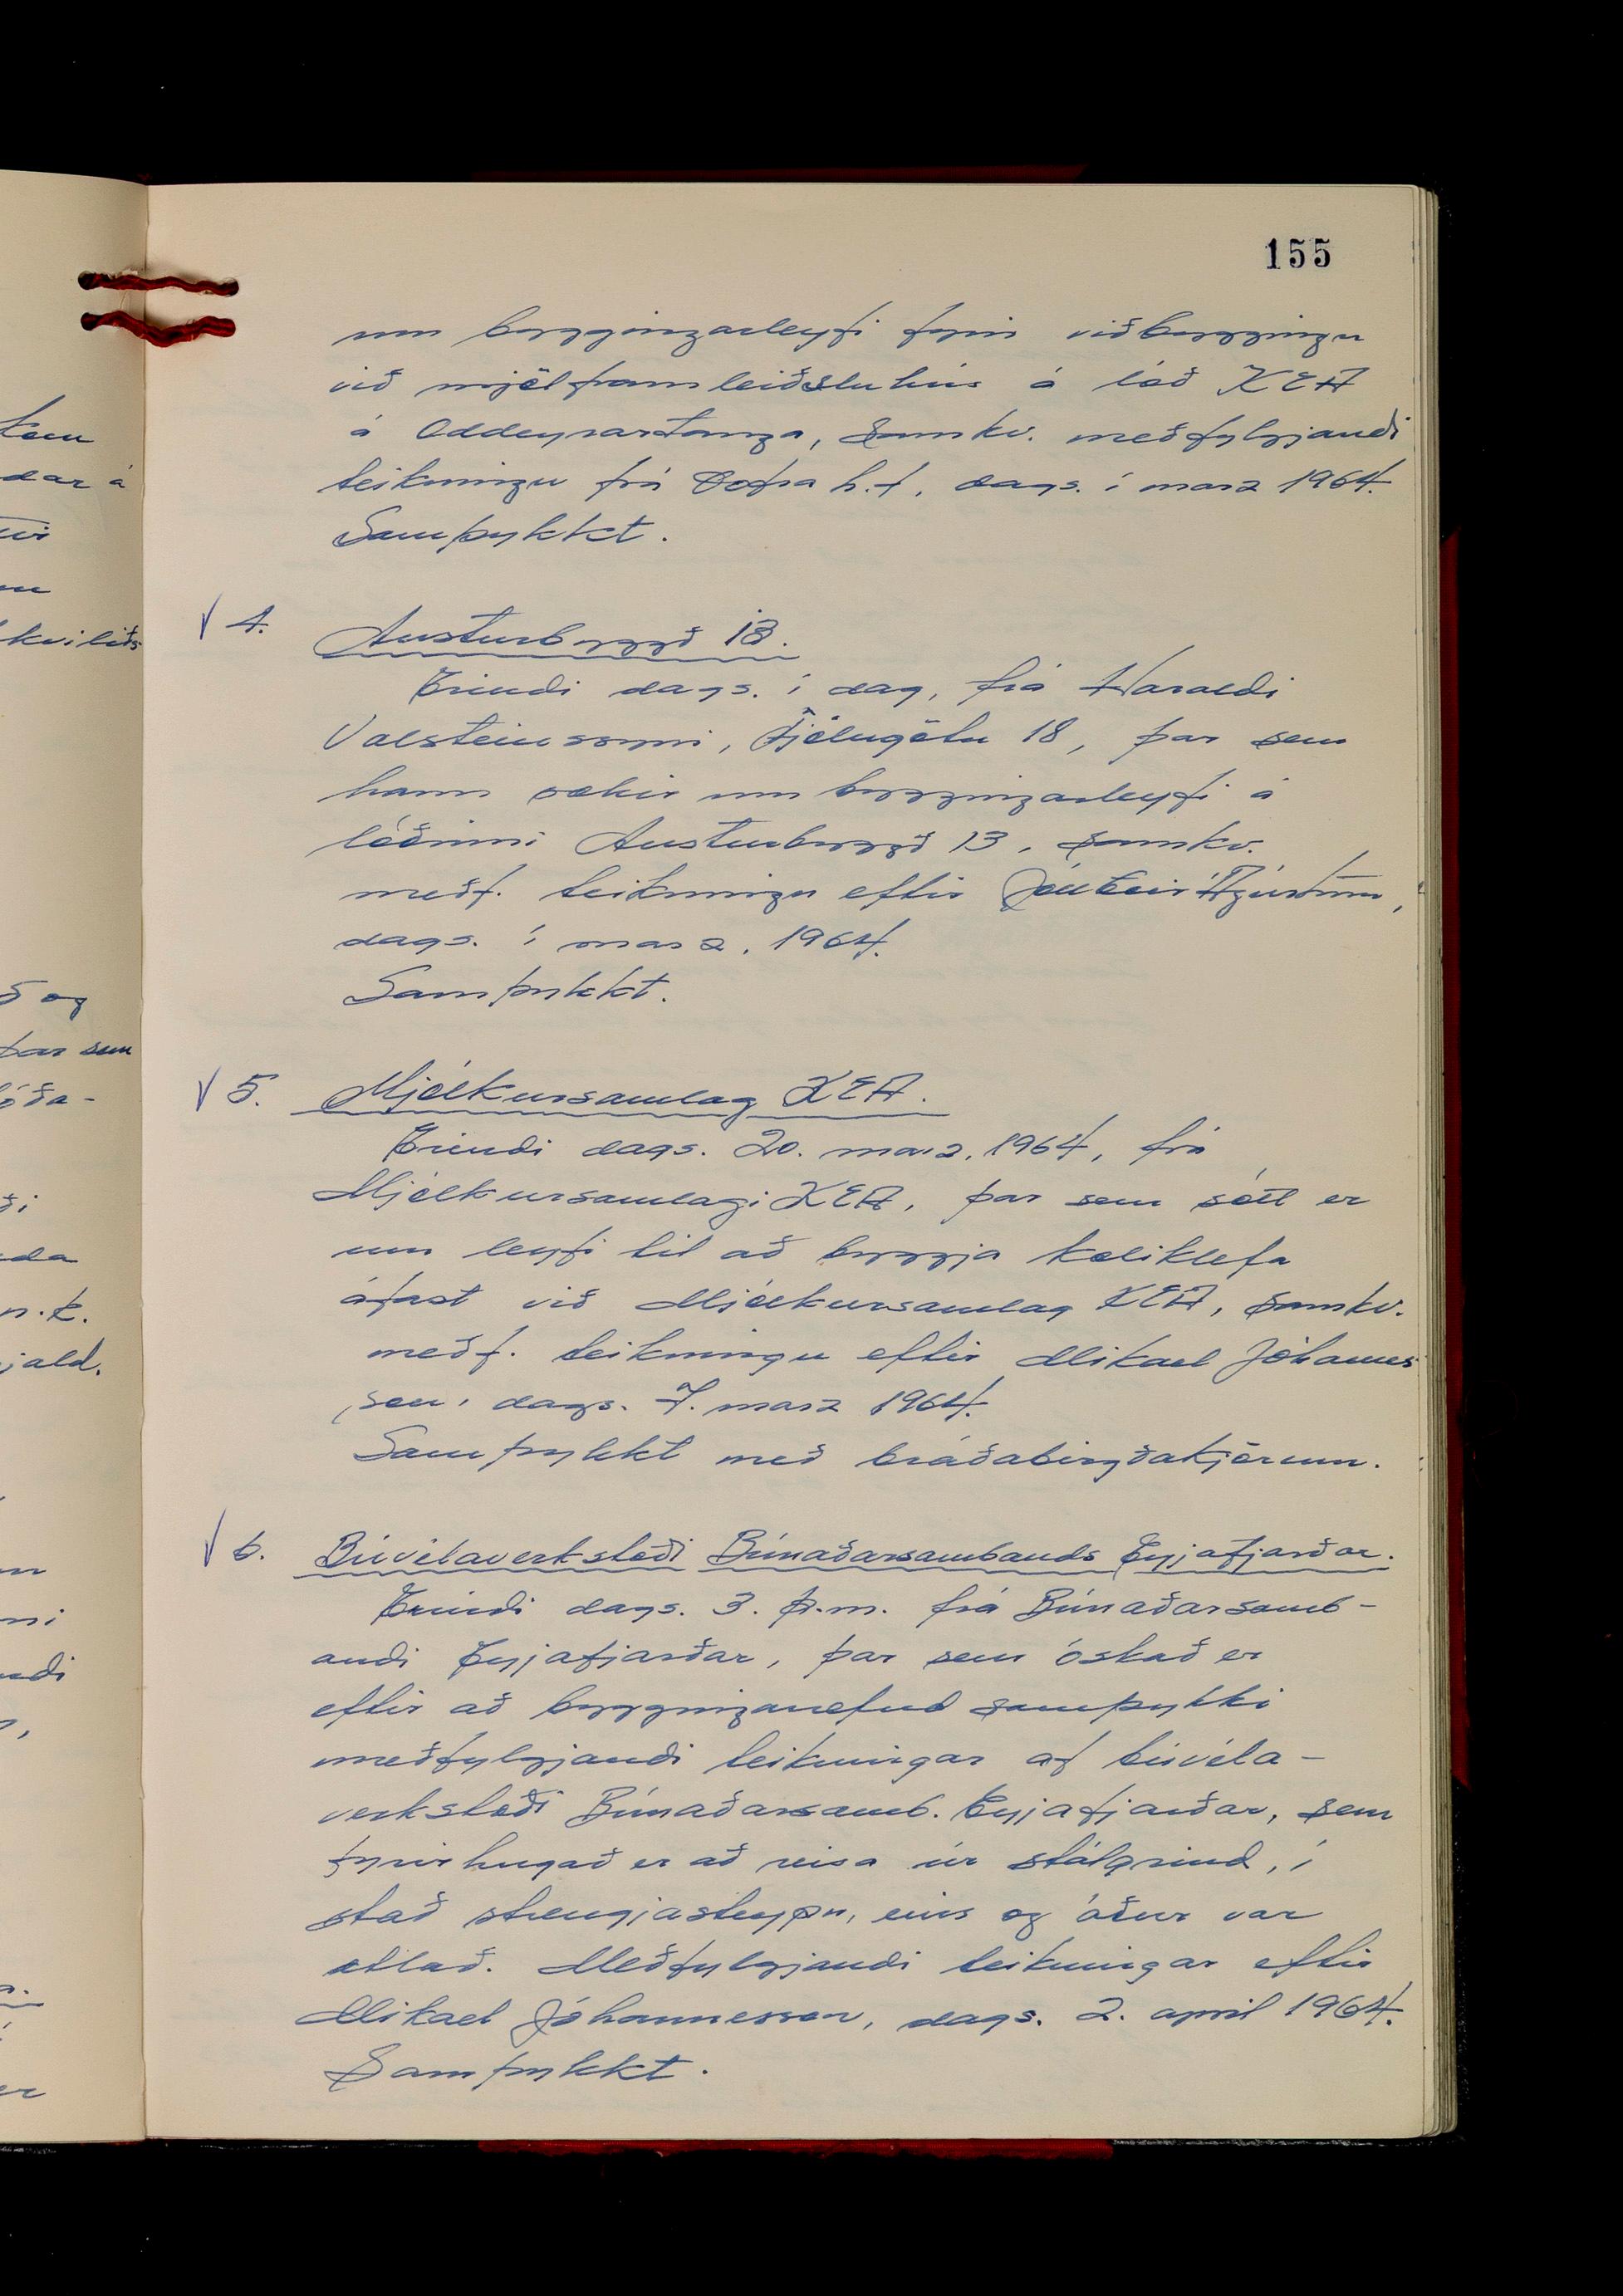 155
um byggingarleyfi fyrir viðbyggingu
við mjölframleiðsluhús á lóð KEA
á Oddeyrartanga, samkv. meðfylgjandi
teikningu frá h.f. dags. í marz 1964.
Samþykkt.
4. Austurbyggð 13.
Erindi dags. í dag, frá Haraldi
Valsteinssyni, Fjólugötu 18, þar sem
hann sækir um byggingarleyfi á
lóðinni Austurbyggð 13, samkv.
meðf. teikningu eftir Jón Geir Ágústsson,
dags. í marz. 1964.
Samþykkt.
5. Mjólkursamlag KEA.
Erindi dags. 20. marz. 1964, frá
Mjólkursamlagi KEA, þar sem sótt er
um leyfi til að byggja kæliklefa
áfast við Mjólkursamlag KEA, samkv.
meðf. teikningu eftir Mikael Jóhannes
son, dags. 7. marz 1964.
Samþykkt með bráðabirgðakjörum.
6. Búvélaverkstæði Búnaðarsambands Eyjafjarðar.
Erindi dags. 3. þ.m. frá Búnaðarsamb-
andi Eyjafjarðar, þar sem óskað er
eftir að byggingarnefnd samþykki
meðfylgjandi teikningar af búvéla-
verkstæði Búnaðarsamb. Eyjafjarðar, sem
fyrirhugað er að reisa úr stálgrind, í
stað strengjasteypu, eins og áður var
ætlað. Meðfylgjandi teikningar eftir
Mikael Jóhannesson, dags. 2. apríl 1964.
Samþykkt.